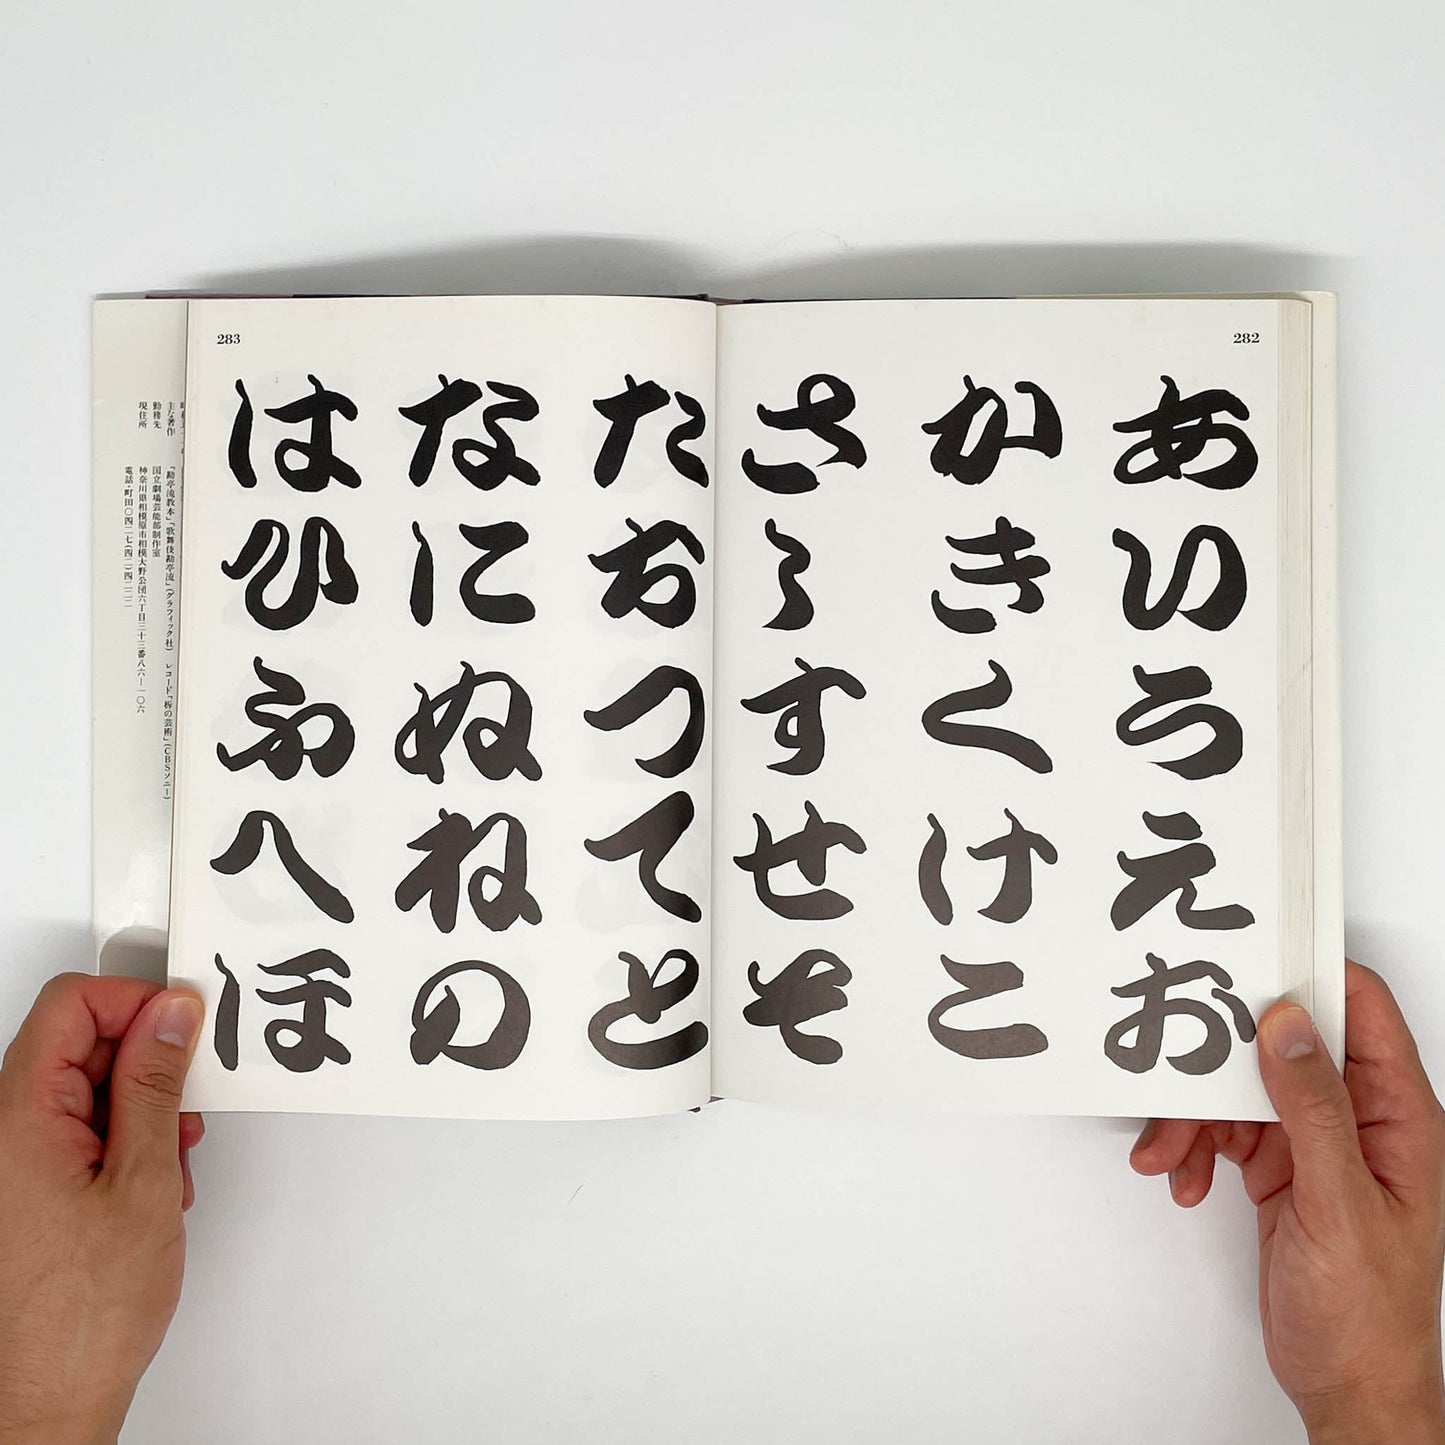 282
あいうえお
かきくけこ
さしすせそ
283
たちつてと
なにぬねの
はひふへほ
主な著作 「勘亭流教本」「歌舞伎勘亭流」(グラフィック社) レコード「柝の芸術」(CBSソニー)
勤務先 国立劇場芸能部制作室
現住所 神奈川県相模原市相模大野公団六丁目三十三番八六ー一〇六
電話・町田〇四二七(四二)四二二二